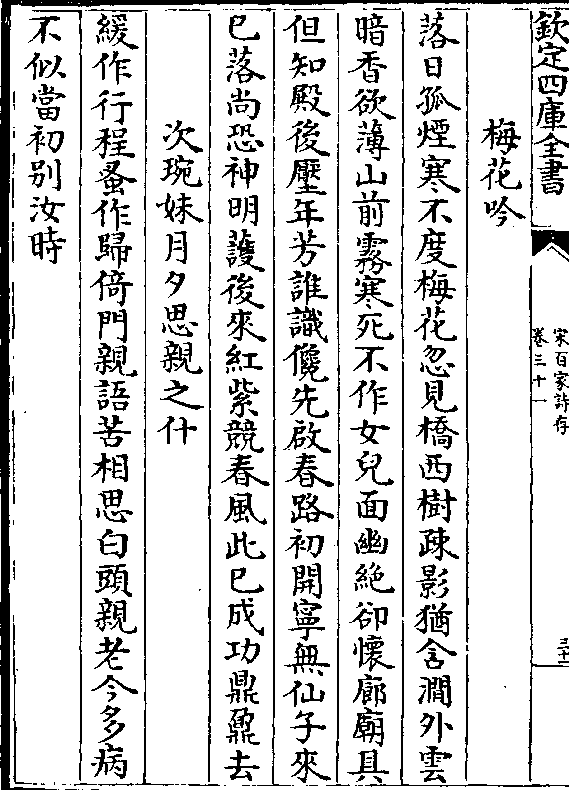 欽定四庫全書
宋百家詩存
卷三十一
梅花吟
落日孤煙寒不度梅花忽見橋西樹疎影猶含澗外雲
暗香欲薄山前霧寒死不作女兒面幽絕卻懷廊廟具
但知殿後壓年芳誰識儳先啟春路初開寧無仙子來
已落尚恐神明護後來紅紫競春風此已成功鼎鼐去
次琬妹月夕思親之什
緩作行程蚤作歸倚門親語苦相思白頭親老今多病
不似當初别汝時